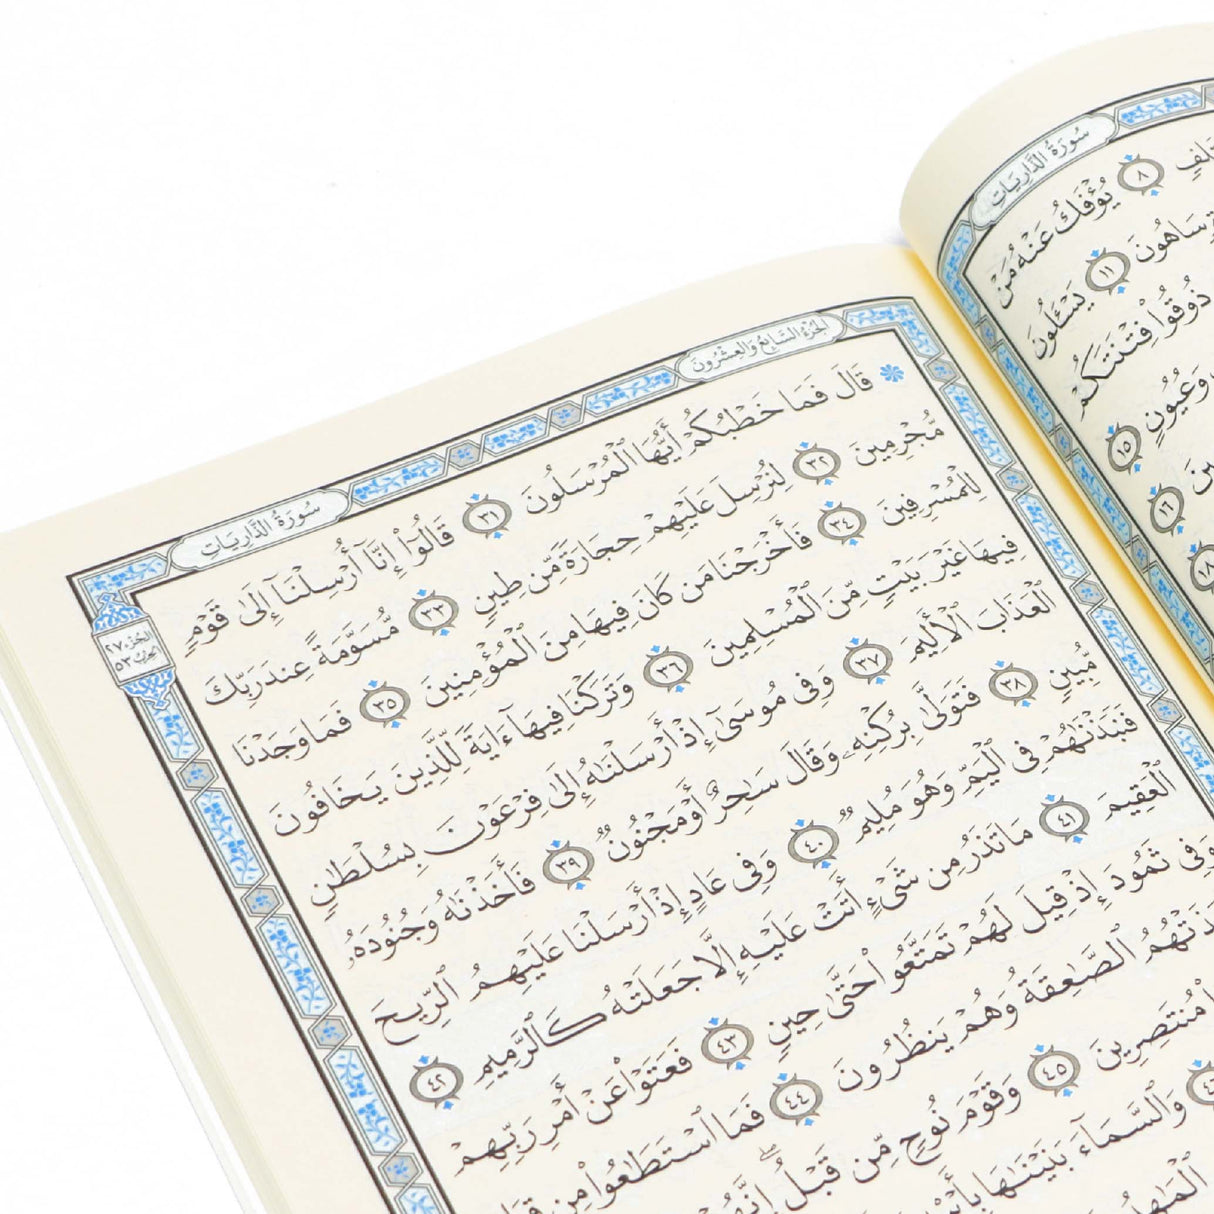 سُورَةُ الذَّارِيَاتِ
٨ يُؤْفَكُ عَنْهُ مَنْ
سَاهُونَ ١١ يَسْـَٔلُونَ
ذُوقُوا۟ فِتْنَتَكُمْ
وَعُيُونٍ ١٥
١٦
١٨
الجُزْءُ السَّابِعُ وَالعِشْرُونَ
سُورَةُ الذَّارِيَاتِ
الجزء ٢٧
الحزب ٥٣
۞ قَالَ فَمَا خَطْبُكُمْ أَيُّهَا ٱلْمُرْسَلُونَ ٣١ قَالُوٓا۟ إِنَّآ أُرْسِلْنَآ إِلَىٰ قَوْمٍ
مُّجْرِمِينَ ٣٢ لِنُرْسِلَ عَلَيْهِمْ حِجَارَةً مِّن طِينٍ ٣٣ مُّسَوَّمَةً عِندَ رَبِّكَ
لِلْمُسْرِفِينَ ٣٤ فَأَخْرَجْنَا مَن كَانَ فِيهَا مِنَ ٱلْمُؤْمِنِينَ ٣٥ فَمَا وَجَدْنَا
فِيهَا غَيْرَ بَيْتٍ مِّنَ ٱلْمُسْلِمِينَ ٣٦ وَتَرَكْنَا فِيهَآ ءَايَةً لِّلَّذِينَ يَخَافُونَ
ٱلْعَذَابَ ٱلْأَلِيمَ ٣٧ وَفِى مُوسَىٰٓ إِذْ أَرْسَلْنَٰهُ إِلَىٰ فِرْعَوْنَ بِسُلْطَٰنٍ
مُّبِينٍ ٣٨ فَتَوَلَّىٰ بِرُكْنِهِۦ وَقَالَ سَٰحِرٌ أَوْ مَجْنُونٌ ٣٩ فَأَخَذْنَٰهُ وَجُنُودَهُۥ
فَنَبَذْنَٰهُمْ فِى ٱلْيَمِّ وَهُوَ مُلِيمٌ ٤٠ وَفِى عَادٍ إِذْ أَرْسَلْنَا عَلَيْهِمُ ٱلرِّيحَ
ٱلْعَقِيمَ ٤١ مَا تَذَرُ مِن شَىْءٍ أَتَتْ عَلَيْهِ إِلَّا جَعَلَتْهُ كَٱلرَّمِيمِ ٤٢
وَفِى ثَمُودَ إِذْ قِيلَ لَهُمْ تَمَتَّعُوا۟ حَتَّىٰ حِينٍ ٤٣ فَعَتَوْا۟ عَنْ أَمْرِ رَبِّهِمْ
ٱلصَّٰعِقَةُ وَهُمْ يَنظُرُونَ ٤٤ فَمَا ٱسْتَطَٰعُوا۟ مِن
مُنتَصِرِينَ ٤٥ وَقَوْمَ نُوحٍ مِّن قَبْلُ إِنَّهُمْ
وَٱلسَّمَآءَ بَنَيْنَٰهَا